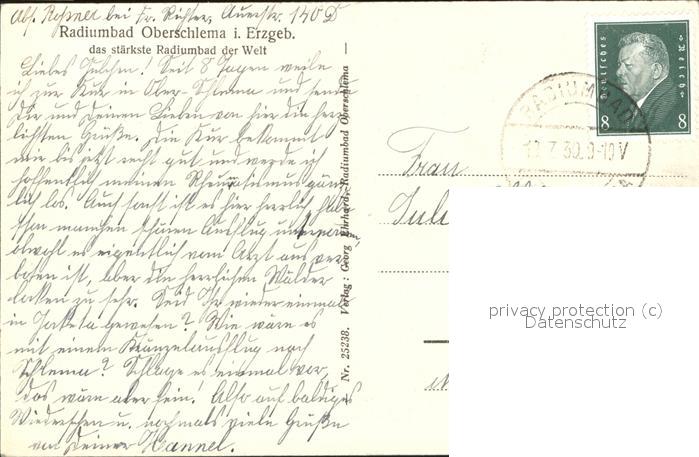 Abs. Reßner bei Fr. Richter, Auerstr. 140 D
Radiumbad Oberschlema i. Erzgeb.
das stärkste Radiumbad der Welt
Liebes Julchen! Seit 8 Tagen weile
ich zur Kur in Ober-Schlema und sende
Dir und Deinen Lieben von hier die herz
lichsten Grüße. Die Kur bekommt
mir bis jetzt recht gut und werde ich
hoffentlich meinen Rheumatismus gänz
lich los. Auch sonst ist es hier herrlich habe
schon manchen schönen Ausflug unternommen,
obwohl es eigentlich vom Arzt aus ver
boten ist, aber die herrlichen Wälder
locken zu sehr. Seid Ihr wieder einmal
in gewesen? Wie wäre es
mit einem Kränzelausflug nach
Schlema? Schlage es einmal vor,
das wäre aber fein! Also auf baldiges
Wiedersehen u. nochmals viele Grüße
von Deiner Hannel.
Nr. 25238. Verlag: Georg Ehrhard, Radiumbad Oberschlema
Deutsches Reich
8 8
RADIUMBAD
7.30.9-10V
Frau
Juli
privacy protection (c)
Datenschutz